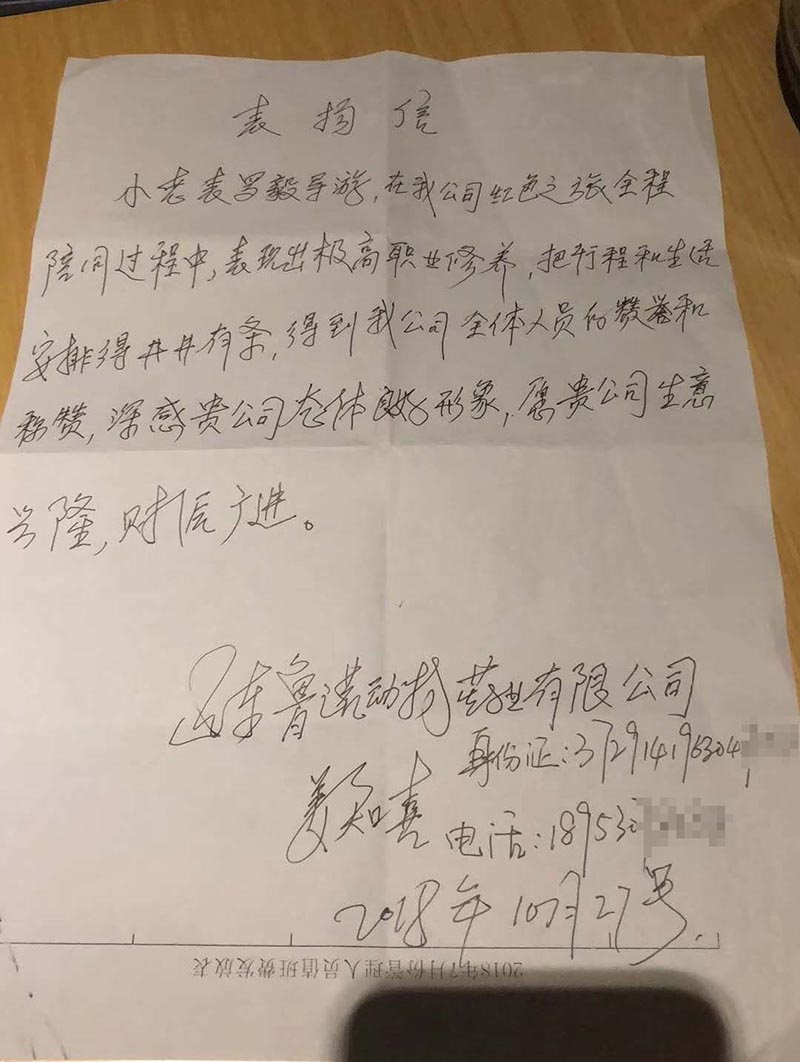 表扬信
小老表罗毅导游,在我公司红色之旅全程
陪同过程中,表现出极高职业修养,把行程和生活
安排得井井有条,得到我公司全体人员的赞誉和
称赞,深感贵公司 良好形象,愿贵公司生意
兴隆,财源广进。
山东鲁诺动物药业有限公司
身份证:372914196304
姜知喜 电话:18953
2018年10月27号.
2018年7月份管理人员值班费发放表